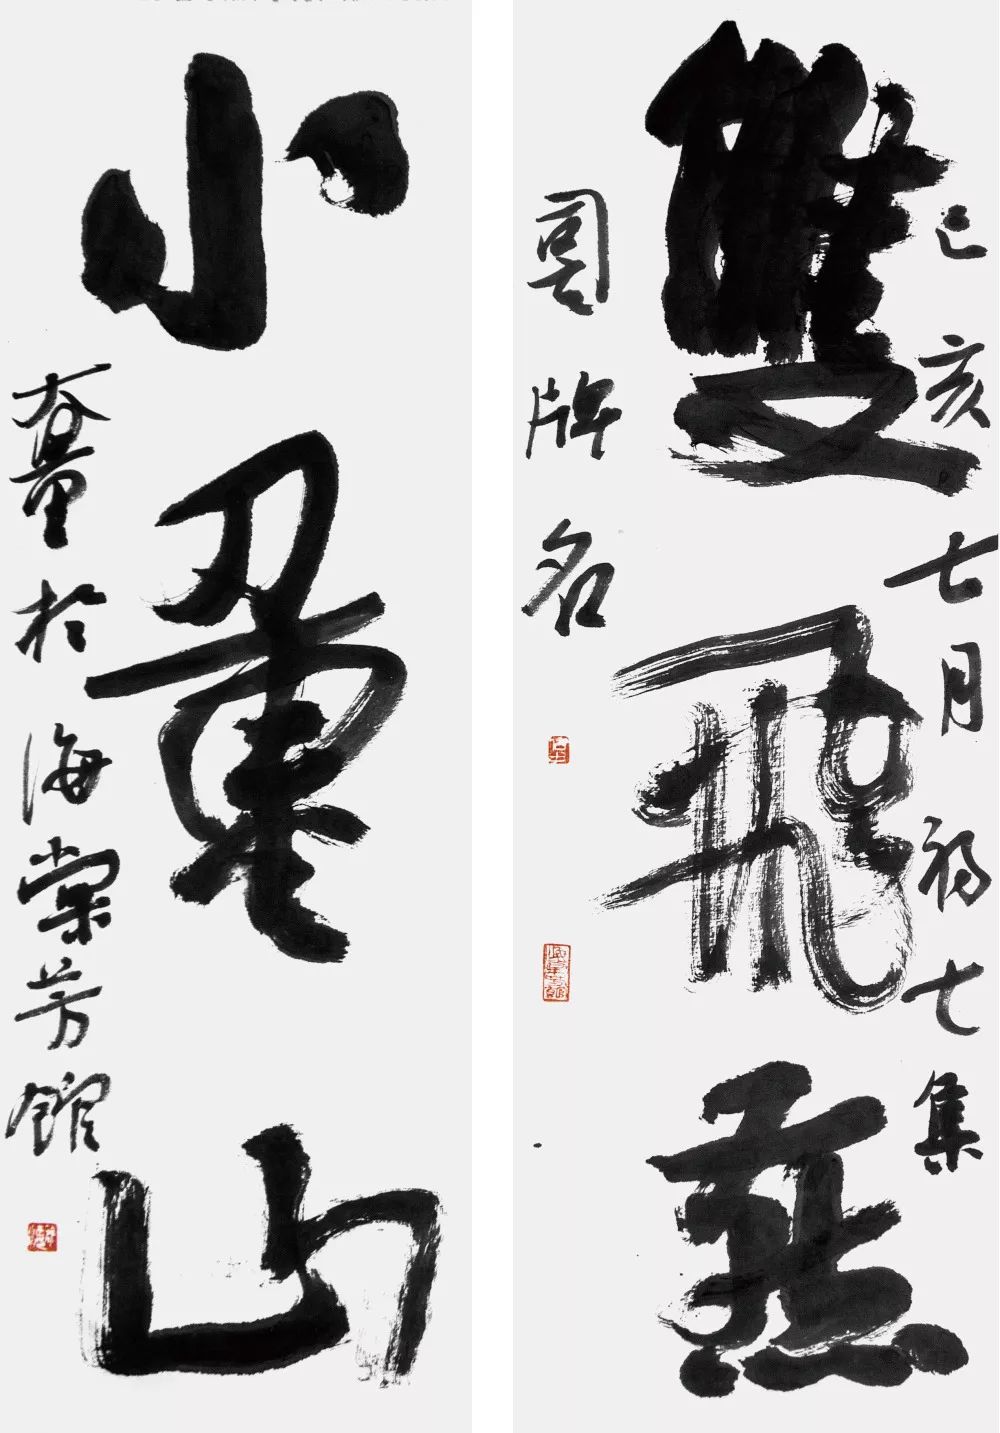 己亥七月初七集
雙飛燕
詞牌名
小重山
於海棠芳館